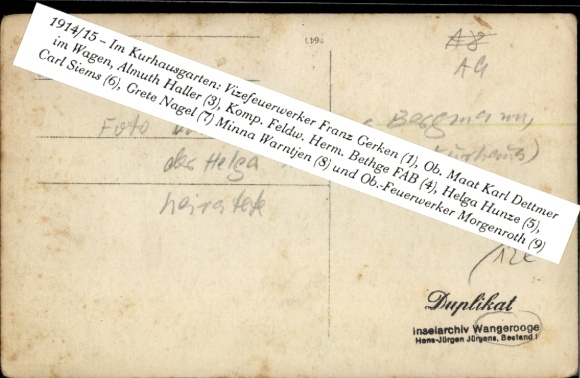 1914/15 – Im Kurhausgarten: Vizefeuerwerker Franz Gerken (1), Ob. Maat Karl Dettmer
im Wagen, Almuth Haller (3), Komp. Feldw. Herm. Bethge FAB (4), Helga Hunze (5),
Carl Siems (6), Grete Nagel (7) Minna Warntjen (8) und Ob.-Feuerwerker Morgenroth (9)
A8
AG
Foto
Bergmann,
Kurhaus)
der Helga
heiratete
Duplikat
Inselarchiv Wangerooge
Hans-Jürgen Jürgens, Bestand I